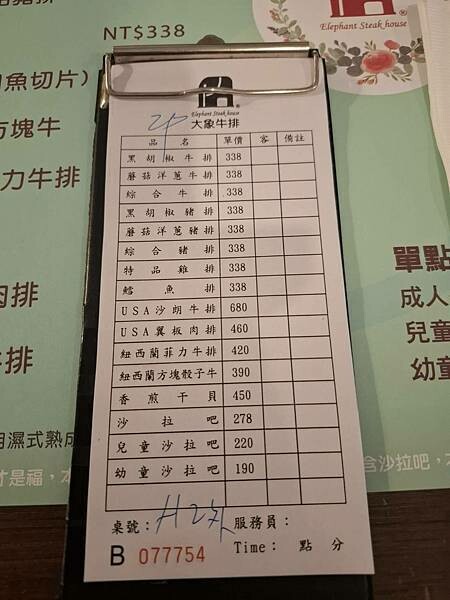 NT$338
Elephant Steak house
魚切片)
方塊牛
力牛排
肉排
牛排
用濕式熟成
才是福，本
單點
成人
兒童
幼童
含沙拉吧，本
2P
Elephant Steak house ®
大象牛排
品名 單價 客 備註
黑胡椒牛排 338
蘑菇洋蔥牛排 338
綜合牛排 338
黑胡椒豬排 338
蘑菇洋蔥豬排 338
綜合豬排 338
特品雞排 338
鱈魚排 338
USA沙朗牛排 680
USA翼板肉排 460
紐西蘭菲力牛排 420
紐西蘭方塊骰子牛 390
香煎干貝 450
沙拉吧 278
兒童沙拉吧 220
幼童沙拉吧 190
桌號： 服務員：
B 077754 Time： 點 分